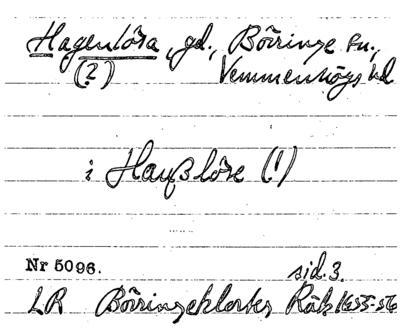 Hagenlösa, gd., Börringe sn.,
(?) Vemmenhögs hd
i Haußlöse (!)
Nr 5096. sid. 3.
LR Börringeklosters Räk 1655-56